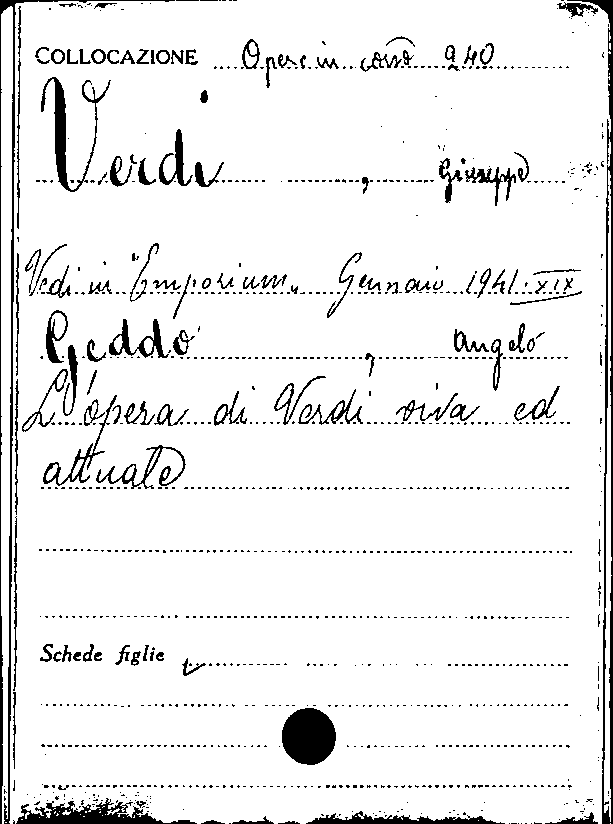 COLLOCAZIONE Opere in corso 240
Verdi , Giuseppe
Vedi in "Emporium" Gennaio 1941·XIX
Geddo , Angelo
L'opera di Verdi viva ed
attuale
Schede figlie